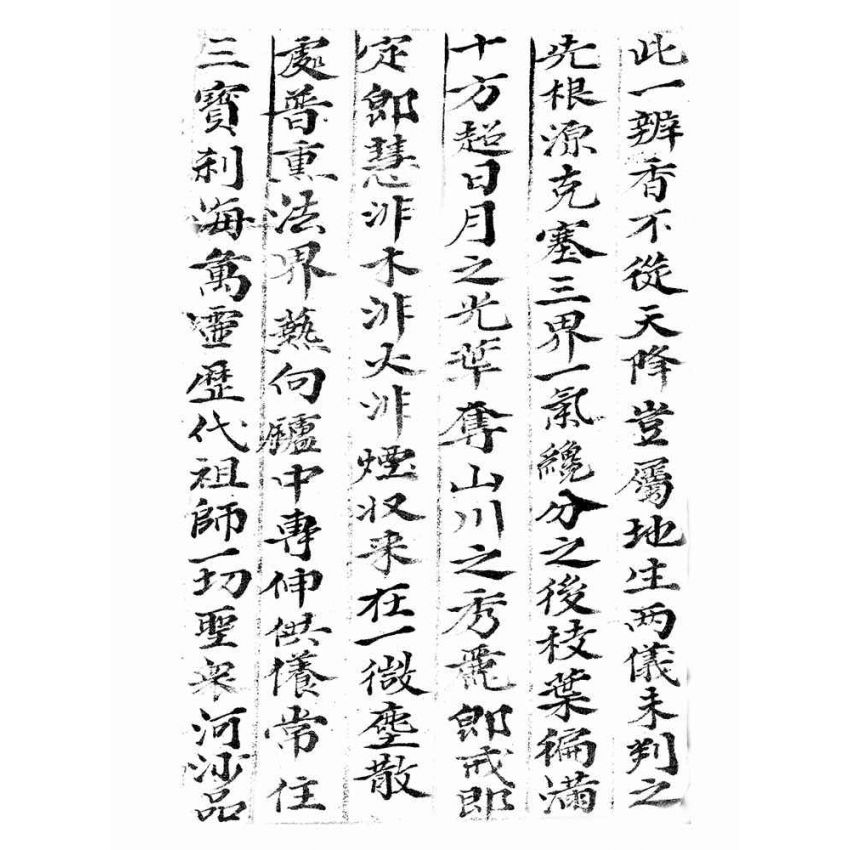 此一辨香不從天降豈屬地生两儀未判之
先根源克塞三界一氣纔分之後枝葉徧滿
十方超日月之光華奪山川之秀麗即戒即
定即慧非木非火非煙収来在一微塵散
處普熏法界爇向鑪中專伸供養常住
三寶刹海萬靈歷代祖師一切聖衆河沙品